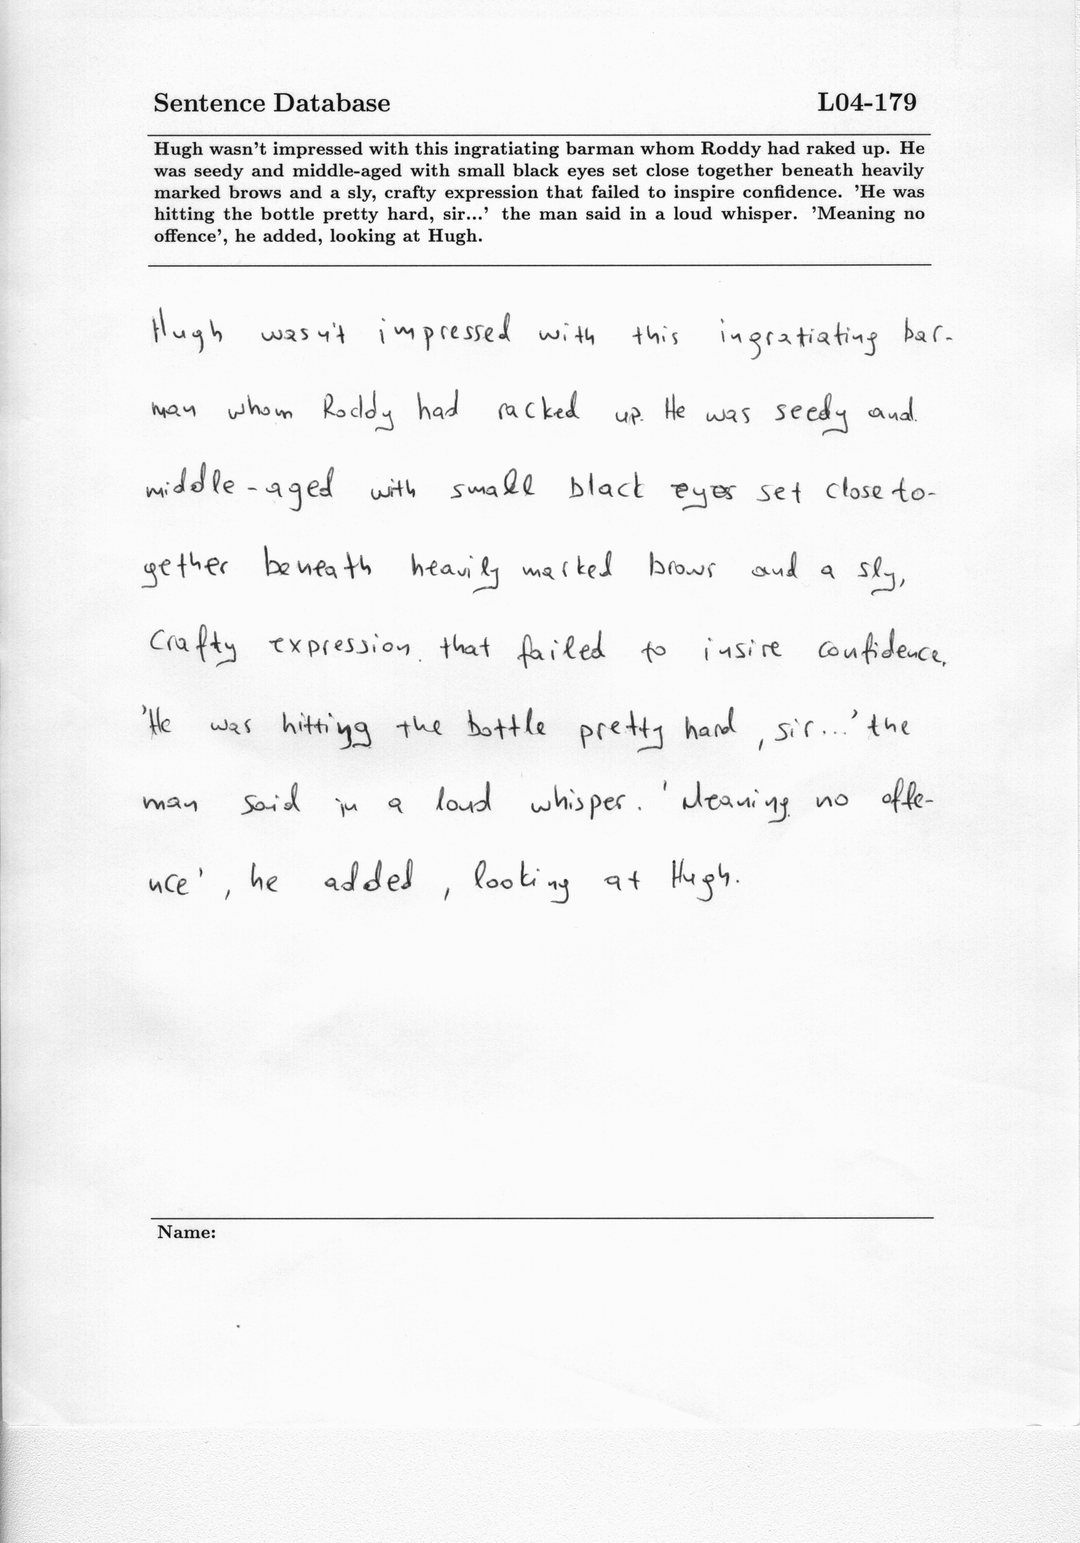 Sentence Database L04-179
Hugh wasn't impressed with this ingratiating barman whom Roddy had raked up. He
was seedy and middle-aged with small black eyes set close together beneath heavily
marked brows and a sly, crafty expression that failed to inspire confidence. 'He was
hitting the bottle pretty hard, sir...' the man said in a loud whisper. 'Meaning no
offence', he added, looking at Hugh.
Hugh wasn't impressed with this ingratiating bar-
man whom Roddy had racked up. He was seedy and
middle-aged with small black eyes set close to-
gether beneath heavily marked brows and a sly,
Crafty expression that failed to insire confidence.
'He was hitting the bottle pretty hard, sir...' the
man said in a loud whisper. 'Meaning no offe-
nce', he added, looking at Hugh.
Name: